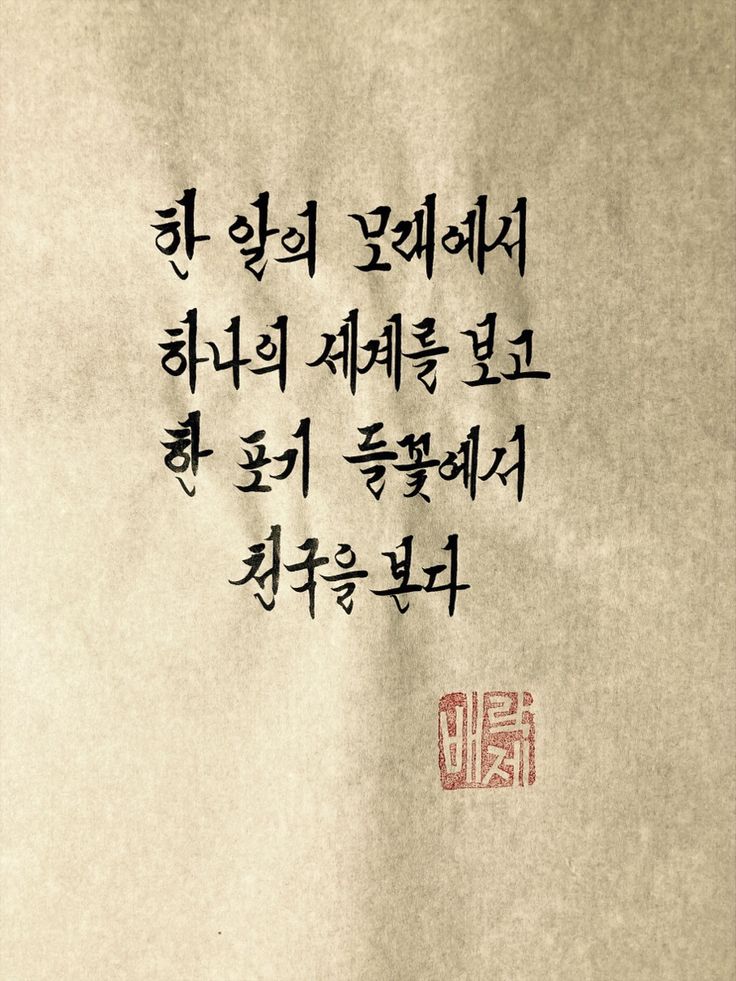 한 알의 모래에서
하나의 세계를 보고
한 포기 들꽃에서
천국을 본다